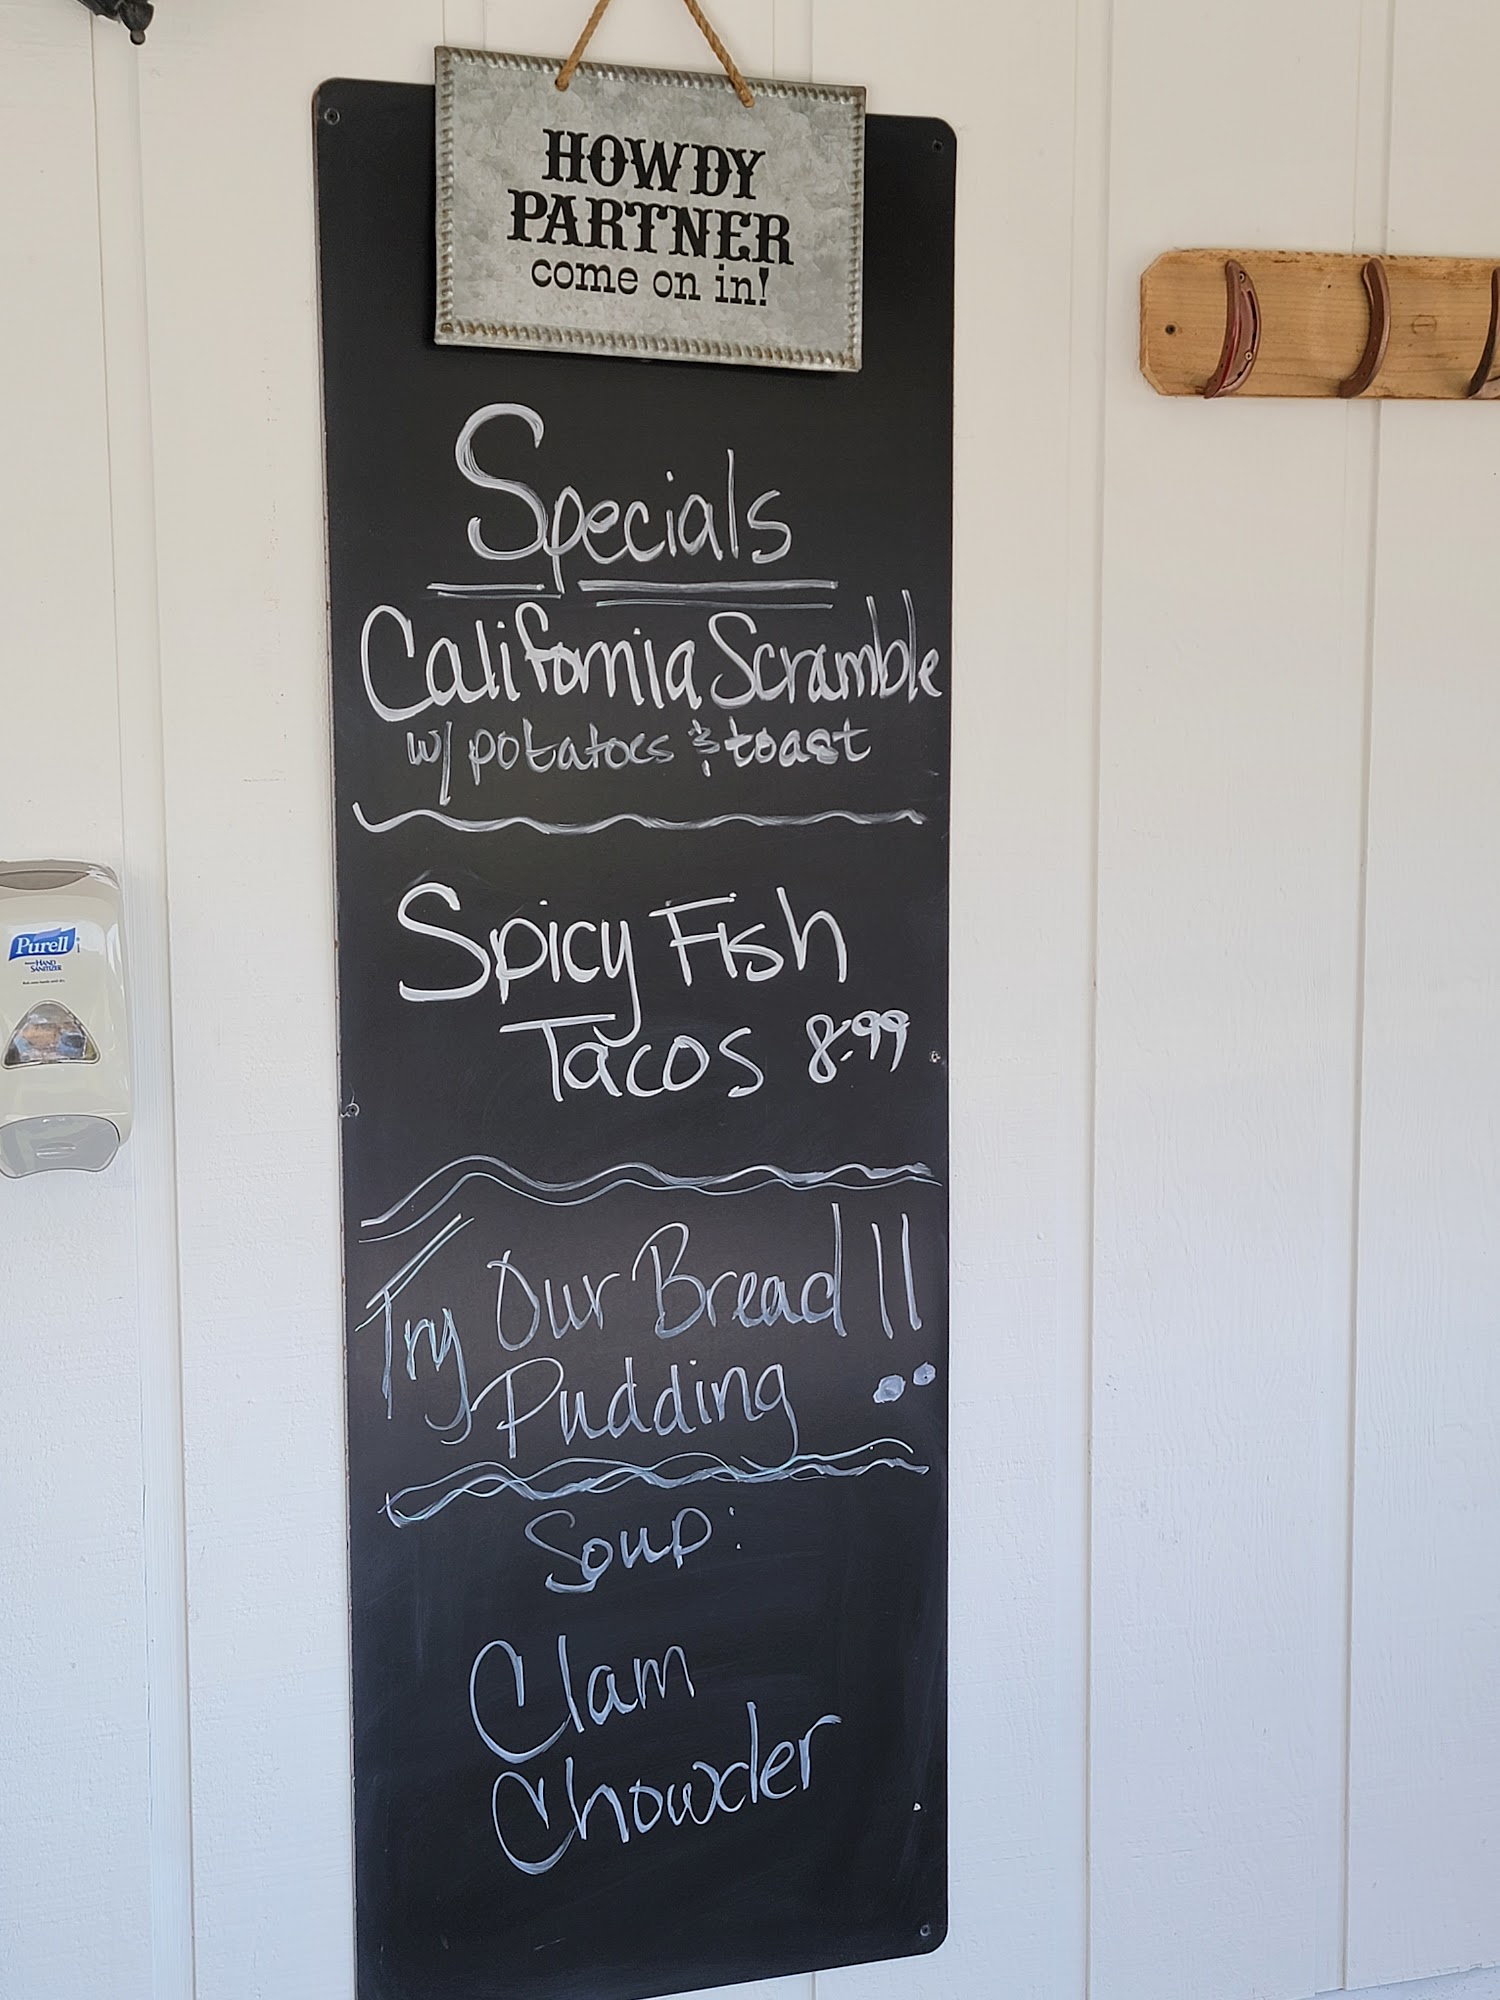 HOWDY
PARTNER
come on in!
Specials
California Scramble
w/ potatoes & toast
Spicy Fish
Tacos 8.99
Try Our Bread!!
Pudding
Soup:
Clam
Chowder
Purell
HAND
SANITIZER